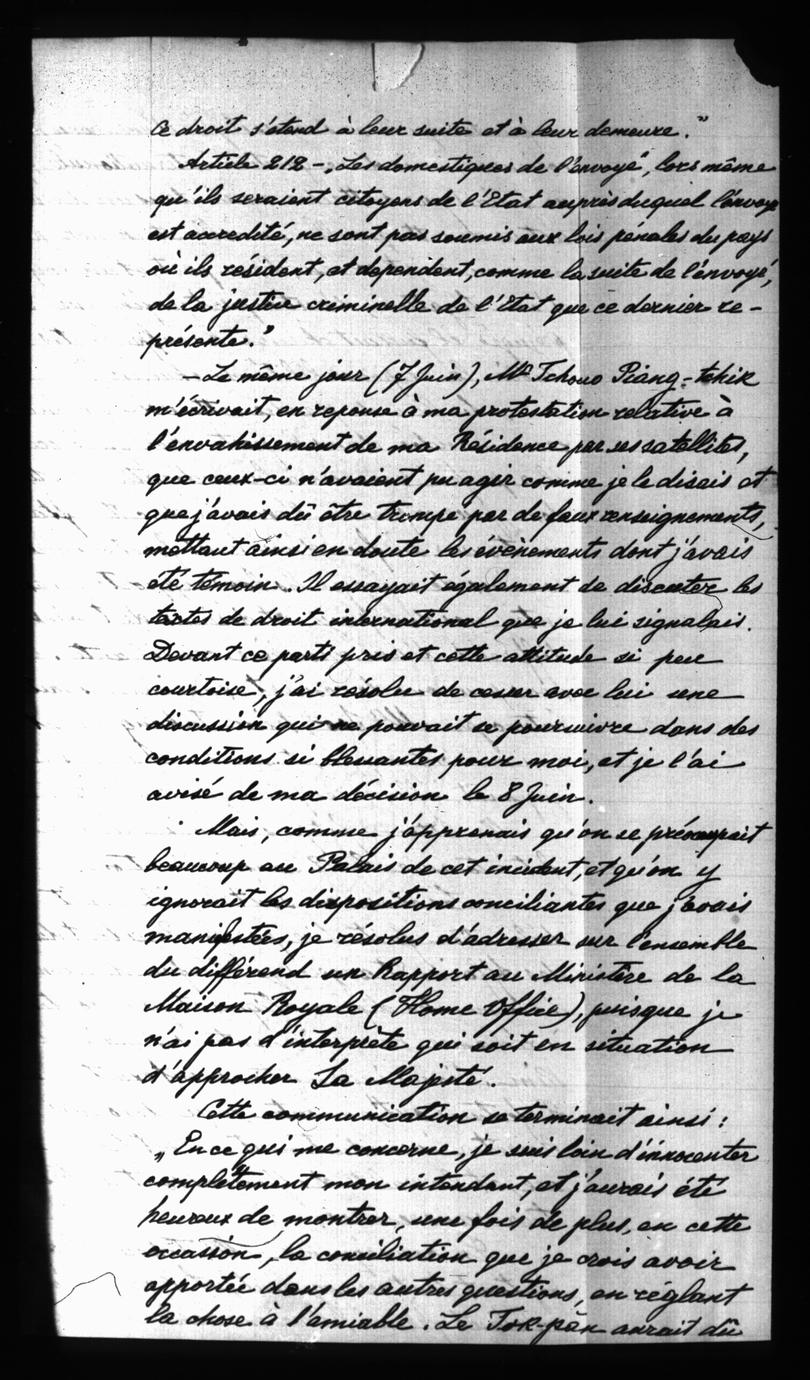 Ce droit s'étend à leur suite et à leur demeure."
Article 212 - „Les domestiques de l'envoyé", lors même
qu'ils seraient citoyens de l'Etat auprès duquel l'envoyé
est accrédité, ne sont pas soumis aux lois pénales du pays
où ils résident, et dependent, comme la suite de l'envoyé,
de la justice criminelle de l'Etat que ce dernier re-
présente."
— Le même jour (7 Juin), Mr Tchouo Piang-tchik
m'écrivait, en reponse à ma protestation relative à
l'envahissement de ma Résidence par ses satellites,
que ceux-ci n'avaient pu agir comme je le disais et
que j'avais dû être trompé par de faux renseignements,
mettant ainsi en doute les évènements dont j'avais
été témoin. Il essayait également de discuter les
textes de droit international que je lui signalais.
Devant ce parti pris et cette attitude si peu
courtoise, j'ai résolu de cesser avec lui une
discussion qui ne pouvait se poursuivre dans des
conditions si blessantes pour moi, et je l'ai
avisé de ma décision le 8 Juin.
Mais, comme j'apprenais qu'on se préoccupait
beaucoup au Palais de cet incident, et qu'on y
ignorait les dispositions conciliantes que j'avais
manifestées, je résolus d'adresser sur l'ensemble
du différend un Rapport au Ministère de la
Maison Royale (Home Office), puisque je
n'ai pas d'interprète qui soit en situation
d'approcher Sa Majesté.
Cette communication se terminait ainsi:
„En ce qui me concerne, je suis loin d'innocenter
complètement mon intendant, et j'aurais été
heureux de montrer, une fois de plus, en cette
occasion, la conciliation que je crois avoir
apportée dans les autres questions, en réglant
la chose à l'amiable. Le Tok-pan aurait dû